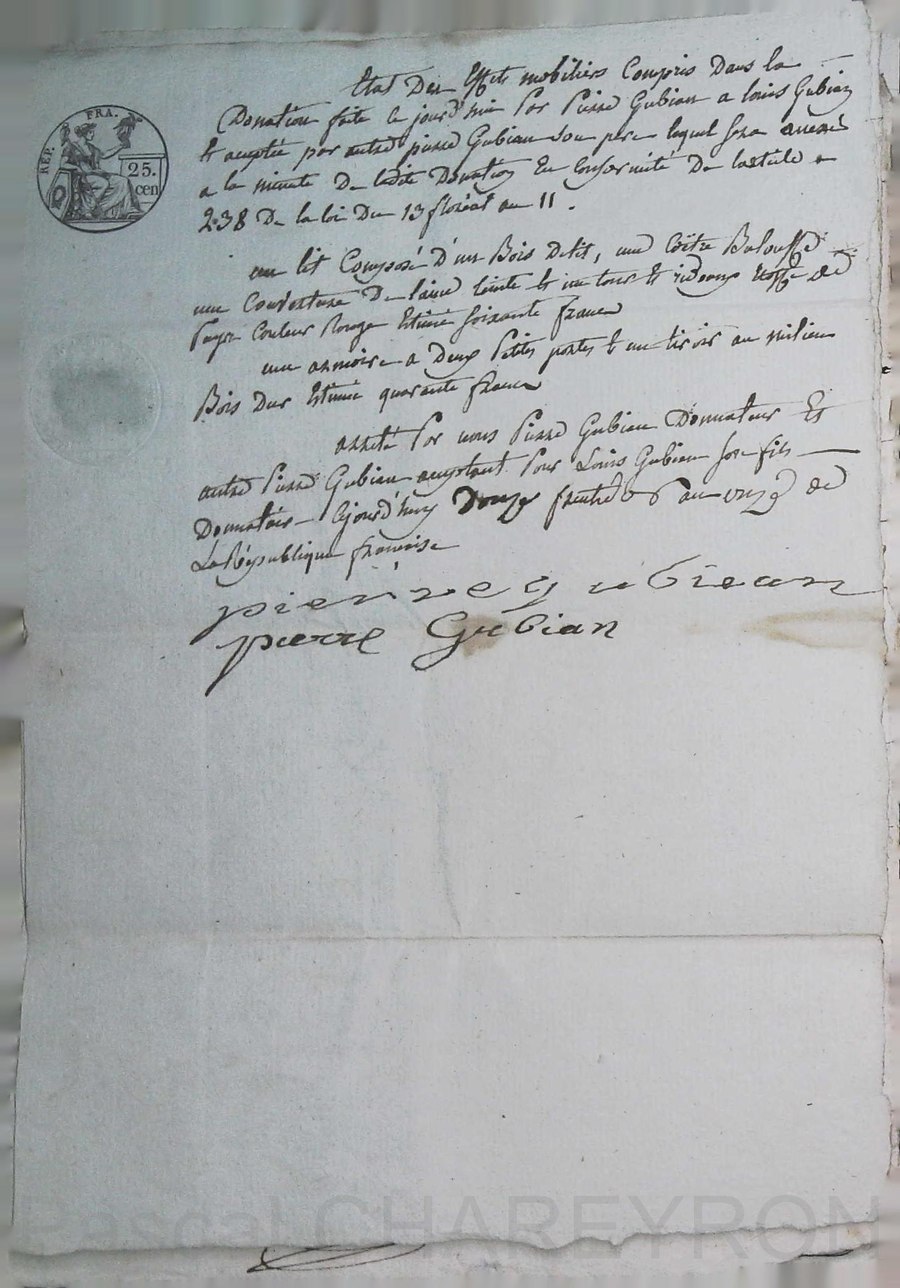 RÉP. FRA.
25.
cen
Etat Des Effets mobiliers Compris Dans la
Donation faite ce jourd'hui Par Pierre Gubian a louis Gubian
et acceptée par autre pierre Gubian son pere lequel sera annexé
a la minute De ladite Donation En Conformité De larticle
238 De la loi Du 13 floréal an 11.
un lit Composé D'un Bois Delit, une Coëtre Balouffe
une Couverture De laine teinte et un tour et rideaux Etoffe de
Pays Couleur Rouge Estimé soixante francs
une armoire a Deux Petites portes et un tiroir au milieu
Bois Dur Estimé quarante francs
arreté Par nous Pierre Gubian Donnateur Et
autre Pierre Gubian acceptant Pour Louis Gubian son fils
Donnataire Cejourd'huy Douze an onze de
La République francaise
pierre gubiean
pierre Gubian
Pascal CHAREYRON